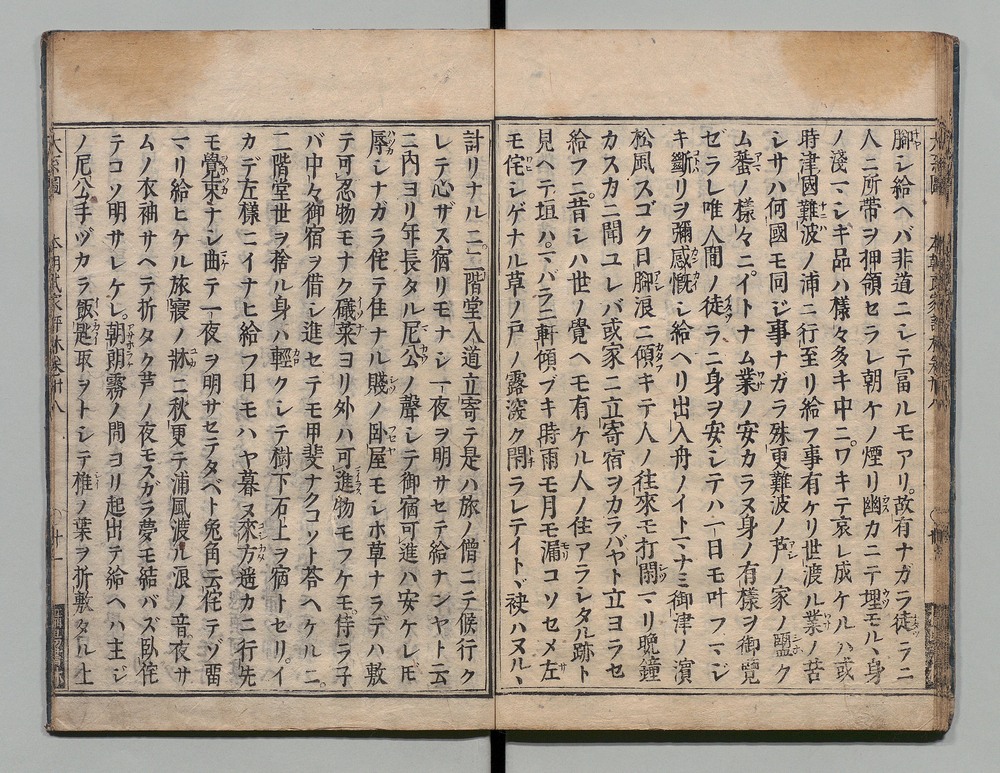 脚シ給ヘバ非道ニシテ冨ルモアリ。故有ナガラ徒ラニ
人ニ所帯ヲ押領セラレ朝ケノ煙リ幽カニテ埋モルヽ身
ノ淺マシギ品ハ様々多キ中ニワキテ哀レ成ケルハ或
時津國難波ノ浦ニ行至リ給フ事有ケリ世渡ル業ノ苦
シサハ何國モ同ジ事ナガラ殊更難波ノ芦ノ家ノ鹽ク
ム蜑ノ様々ニイトナム業ノ安カラヌ身ノ有様ヲ御覽
ゼラレ唯人間ノ徒ラニ身ヲ安シテハ一日モ叶フマジ
キ斷リヲ彌感慨シ給ヘリ出入舟ノイトマナミ御津ノ濱
松風スゴク日脚浪ニ傾キテ人ノ往來モ打閉マリ晩鐘
カスカニ聞ユレバ或家ニ立寄宿ヲカラバヤト立ヨラセ
給フニ昔シハ世ノ覺ヘモ有ケル人ノ住アラシタル跡ト
見ヘテ垣ハマバラニ軒傾ブキ時雨モ月モ漏コソセメ左
モ侘シゲナル草ノ戸ノ露深ク閇ラレテイトヾ袂ハヌルヽ
計リナルニ。二階堂入道立寄テ是ハ旅ノ僧ニテ候行ク
レテ心ザス宿リモナシ一夜ヲ明サセテ給ナンヤト云
ニ内ヨリ年長タル尼公ノ聲シテ御宿可進ハ安ケレ𪜈
辱シナガラ侘テ住ナル賤ノ卧屋モシホ草ナラデハ敷
テ可忍物モナク礒菜ヨリ外ハ可進物モフケモ侍ラ子
バ中々御宿ヲ借シ進セテモ甲斐ナクコソト荅ヘケルニ。
二階堂世ヲ捨ル身ハ輕クシテ樹下石上ヲ宿トセリ。イ
カデ左様ニイナヒ給フ日モハヤ暮ヌ來方遊カニ行先
モ覺束ナシ曲テ一夜ヲ明サセテタベト兎角云侘テゾ畱
マリ給ヒケル旅寢ノ牀ニ秋更テ浦風渡ル浪ノ音夜サ
ムノ衣袖サヘテ折タク芦ノ夜モスガラ夢モ結バズ臥侘
テコソ明サレケレ。朝朗霧ノ間ヨリ起出テ給ヘハ主ジ
ノ尼公手ヅカラ飯匙取ヲトシテ椎ノ葉ヲ折敷タル上